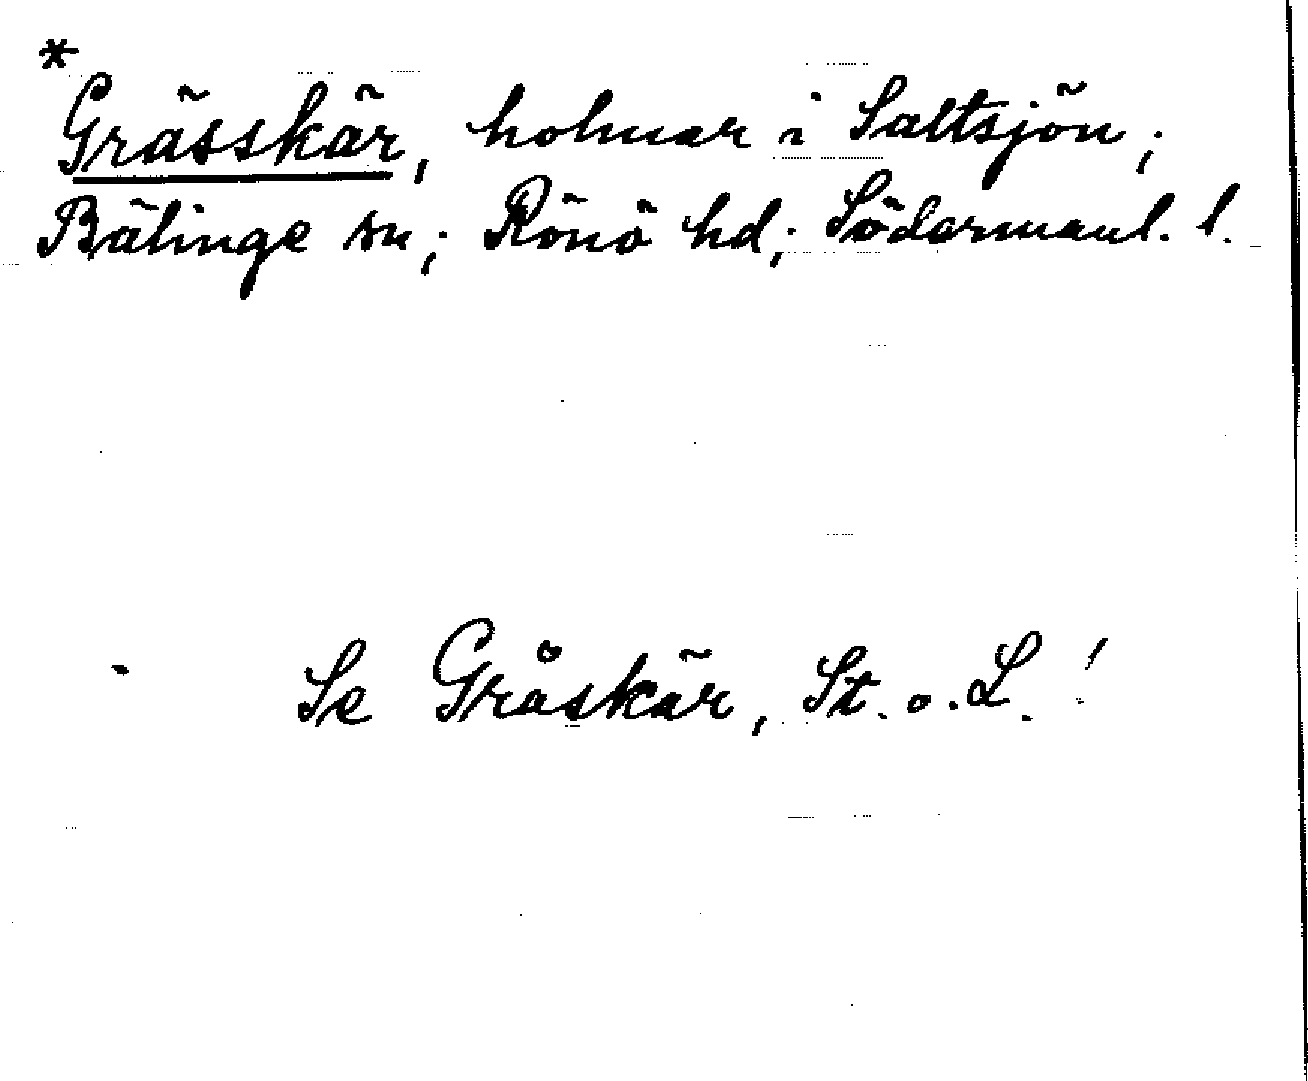 *
Grässkär, holmar i Saltsjön;
Bälinge sn; Rönö hd; Södermanl. l.
Se Gråskär, St. o. L.!